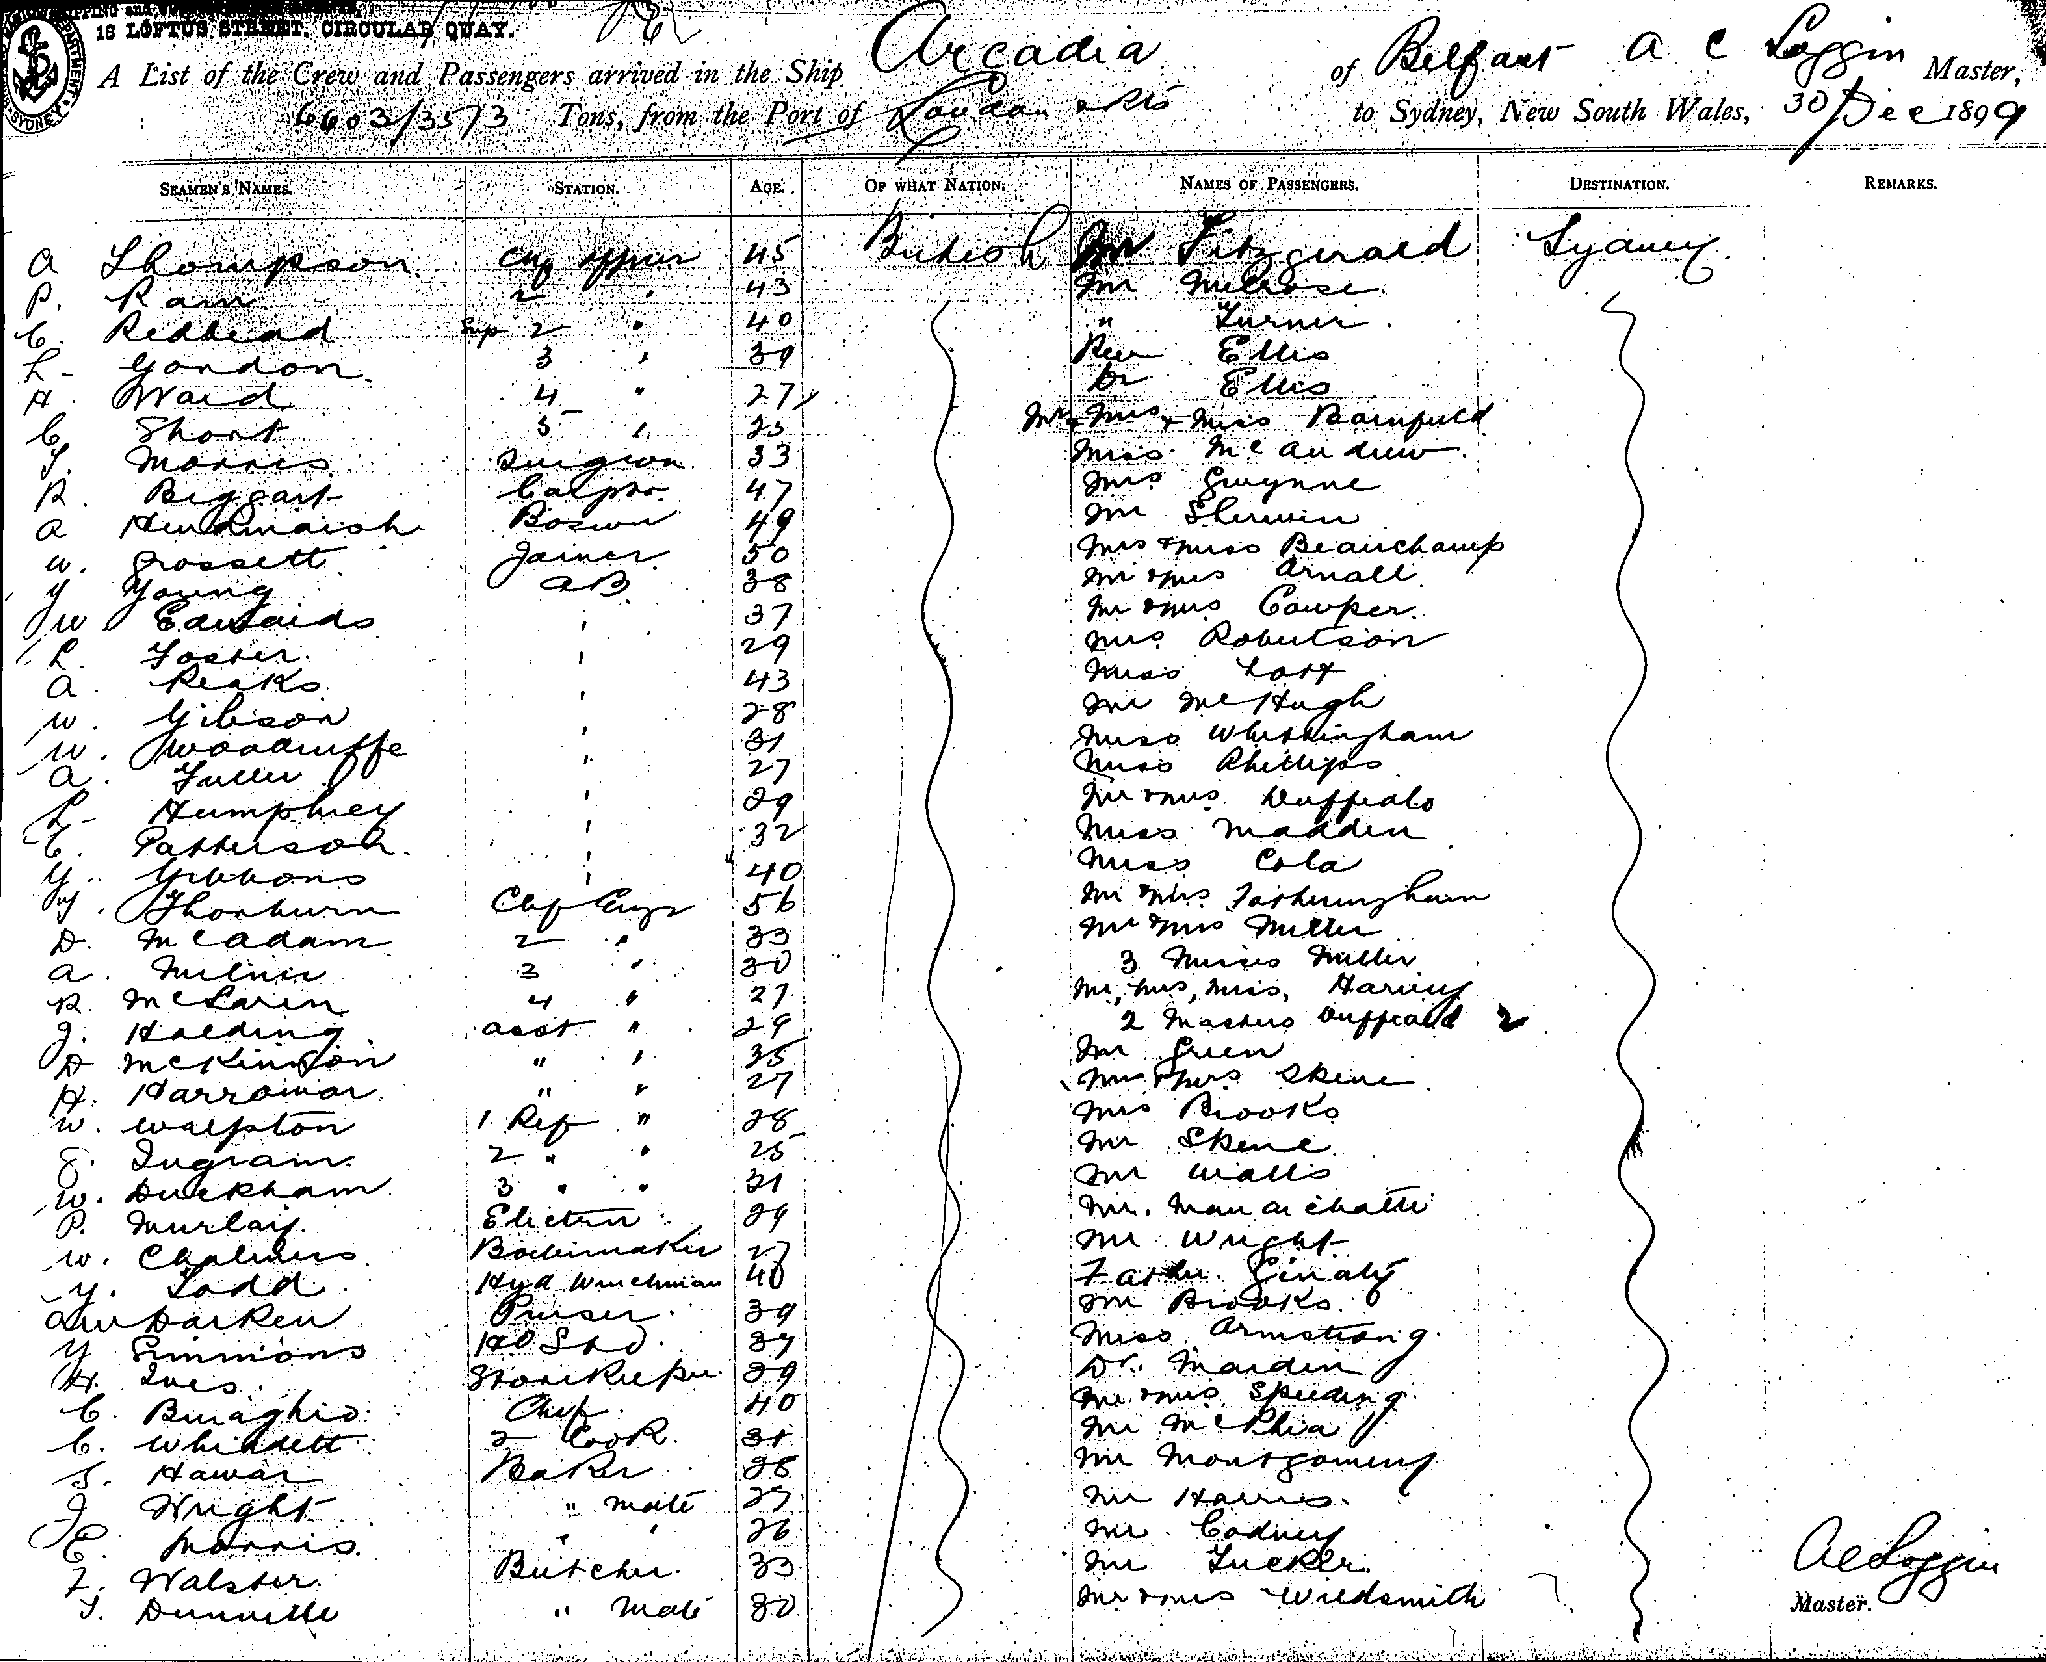 18 LOFTUS STREET, CIRCULAR QUAY.
A List of the Crew and Passengers arrived in the Ship Arcadia of Belfast A C Loggin Master,
6603/3573 Tons, from the Port of London & Pts to Sydney, New South Wales, 30 Dec 1899
SEAMEN'S NAMES. STATION. AGE. OF WHAT NATION. NAMES OF PASSENGERS. DESTINATION. REMARKS.
A Thompson Chf Officer 45 British Mr Fitzgerald Sydney
P. Ram 2 " 43 Mr Melrose
C. Redhead Sup 2 " 40 " Turner
L. Gordon 3 " 39 Rev Ellis
H. Ward 4 " 27 Dr Ellis
C. Short 5 " 25 Mr & Mrs & Miss Bamfield
T. Morris Surgeon 33 Miss McAndrew
R. Beggart Carptr 47 Mrs Gwynne
A Hindmarsh Boswn 49 Mr Sherwin
W. Grossett Joiner 50 Mrs & Miss Beauchamp
G Young AB 38 Mr & Mrs Arnall
W Edwards " 37 Mr & Mrs Cowper
L. Foster " 29 Mrs Robertson
A. Reaks " 43 Miss
W. Gibson " 28 Mr McHugh
W. Woodruffe " 31 Miss Whittingham
A. Fuller " 27 Miss Phillips
L. Humphrey " 29 Mr & Mrs Duffield
E. Patterson " 32 Miss Madden
G. Gibbons " 40 Miss Cola
J. Thorburn Chf Engr 56 Mr & Mrs Fotheringham
D. McAdam 2 " 33 Mr & Mrs Miller
A. Milner 3 " 30 3 Misses Miller
R. McLaren 4 " 27 Mr, Mrs, Miss, Harvey
J. Holding Asst " 29 2 Masters Duffield 2
D McKinnon " " 35 Mr Green
H. Harrower " " 27 Mr & Mrs Skene
W. Walpton 1 Ref " 28 Mrs Brooks
J. Ingram 2 " " 25 Mr Skene
W. Duckham 3 " " 31 Mr Watts
P. Electrn 29 Mr.
W. Chalmers Boilermaker 27 Mr Wright
G. Todd Hyd Winchman 40 Father
A W Darken Purser 39 Mr Brooks
G Simmons Hd Std 37 Miss Armstrong
H. Ives Storekeeper 29 Dr. Marden
C. Binaghio Chef 40 Mr & Mrs Speeding
C. Whindett 2 Cook 31 Mr McPhea
S. Hawar Baker 28 Mr Montgomery
J. Wright " Mate 27 Mr Harris
E. Morris " " 26 Mr Codney
F. Walster Butcher 33 Mr Tucker
T. Dunnett " Mate 30 Mr & Mrs Wildsmith
A C Loggin
Master.